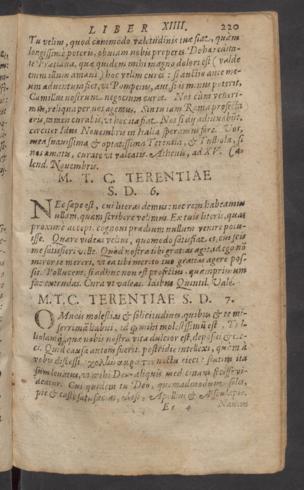 LIBER XIIII. 220
Tu velim, quod commodo valetudinis tuæ fiat, quàm
longissimè poteris, obuiam nobis properes. De hæredita-
te Pretiana, quæ quidem mihi magno dolori est (valde
enim illum amaui) hoc velim cures: si auctio ante me-
um aduentum fiet, vt Pomponius, aut si is minus poterit,
Camillus nostrum negocium curet. Nos cùm venerimus,
reliqua per nos agemus. Sin tu iam Roma profecta
eris, tamen curabis, vt hoc ita fiat. Nos si dij adiuuabūt,
circiter Idus Nouembris in Italia speramus fore. Vos,
mea suauissima & optatissima Terentia, & Tulliola, si
nos amatis, curate vt valeatis. Athenis, ad XV. Ca
lend. Nouembris.
M. T. C. TERENTIAE
S. D. 6.
NEc sæpe est, cui literas demus: nec rem habemus
ullam, quam scribere velimus. Ex tuis literis, quas
proximè accepi, cognoui prædium nullum venire potu-
isse. Quare videas velim, quomodo satisfiat ei, cui scis
me satisfieri velle. Quòd nostra tibi gratias agit, id ego nō
miror te mereri, vt ea tibi merito tuo gratias agere pos-
sit. Pollucem, si adhuc non est profectus, quamprimùm
fac extrudas. Cura vt valeas. Idibus Quintil. Vale.
M. T. C. TERENTIAE S. D. 7.
OMneis molestias & solicitudines, quibus & te mi-
serrimā habui, id quod mihi molestissimū est, Tul-
liolamq́;, quæ nobis nostra vita dulcior est, deposui & eie-
ci. Quid causæ autem fuerit, postridie intellexi, quàm à
vobis discessi.
sum leuatus, vt mihi Deus aliquis medicinam fecisse vi-
deatur. Cui quidem tu Deo, quemadmodum soles,
piè & castè satisfacias, id est Apollini & Æsculapio.
Ee 4 Nauem